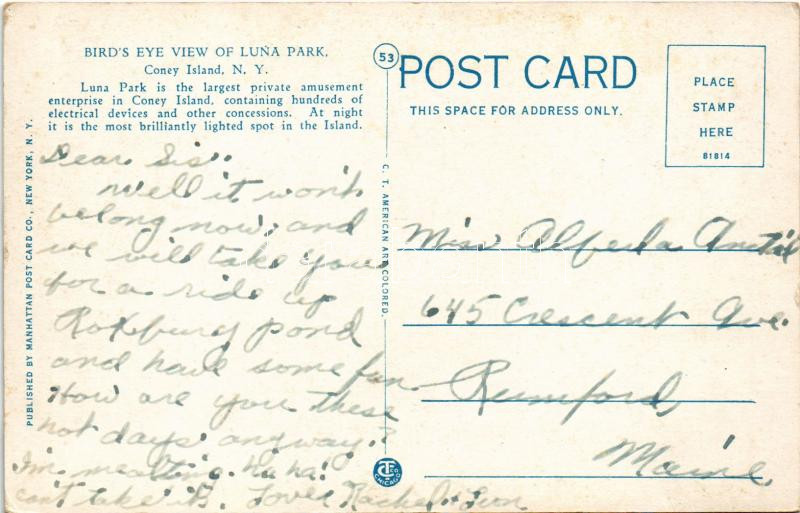 BIRD'S EYE VIEW OF LUÑA PARK,
Coney Island, N. Y.
Luna Park is the largest private amusement
enterprise in Coney Island, containing hundreds of
electrical devices and other concessions. At night
it is the most brilliantly lighted spot in the Island.
Dear Sis:
Well it won't
be long now, and
we will take you
for a ride up
Roxbury pond
and have some fun
How are you these
hot days anyway?
I'm mealting. ha ha!
can't take it. Love, Rachel + Leon
PUBLISHED BY MANHATTAN POST CARD CO., NEW YORK, N. Y.
53
C. T. AMERICAN ART COLORED.
POST CARD
THIS SPACE FOR ADDRESS ONLY.
PLACE
STAMP
HERE
81814
Miss Alfreda
645 Crescent Ave.
Rumford,
Maine
CHICAGO